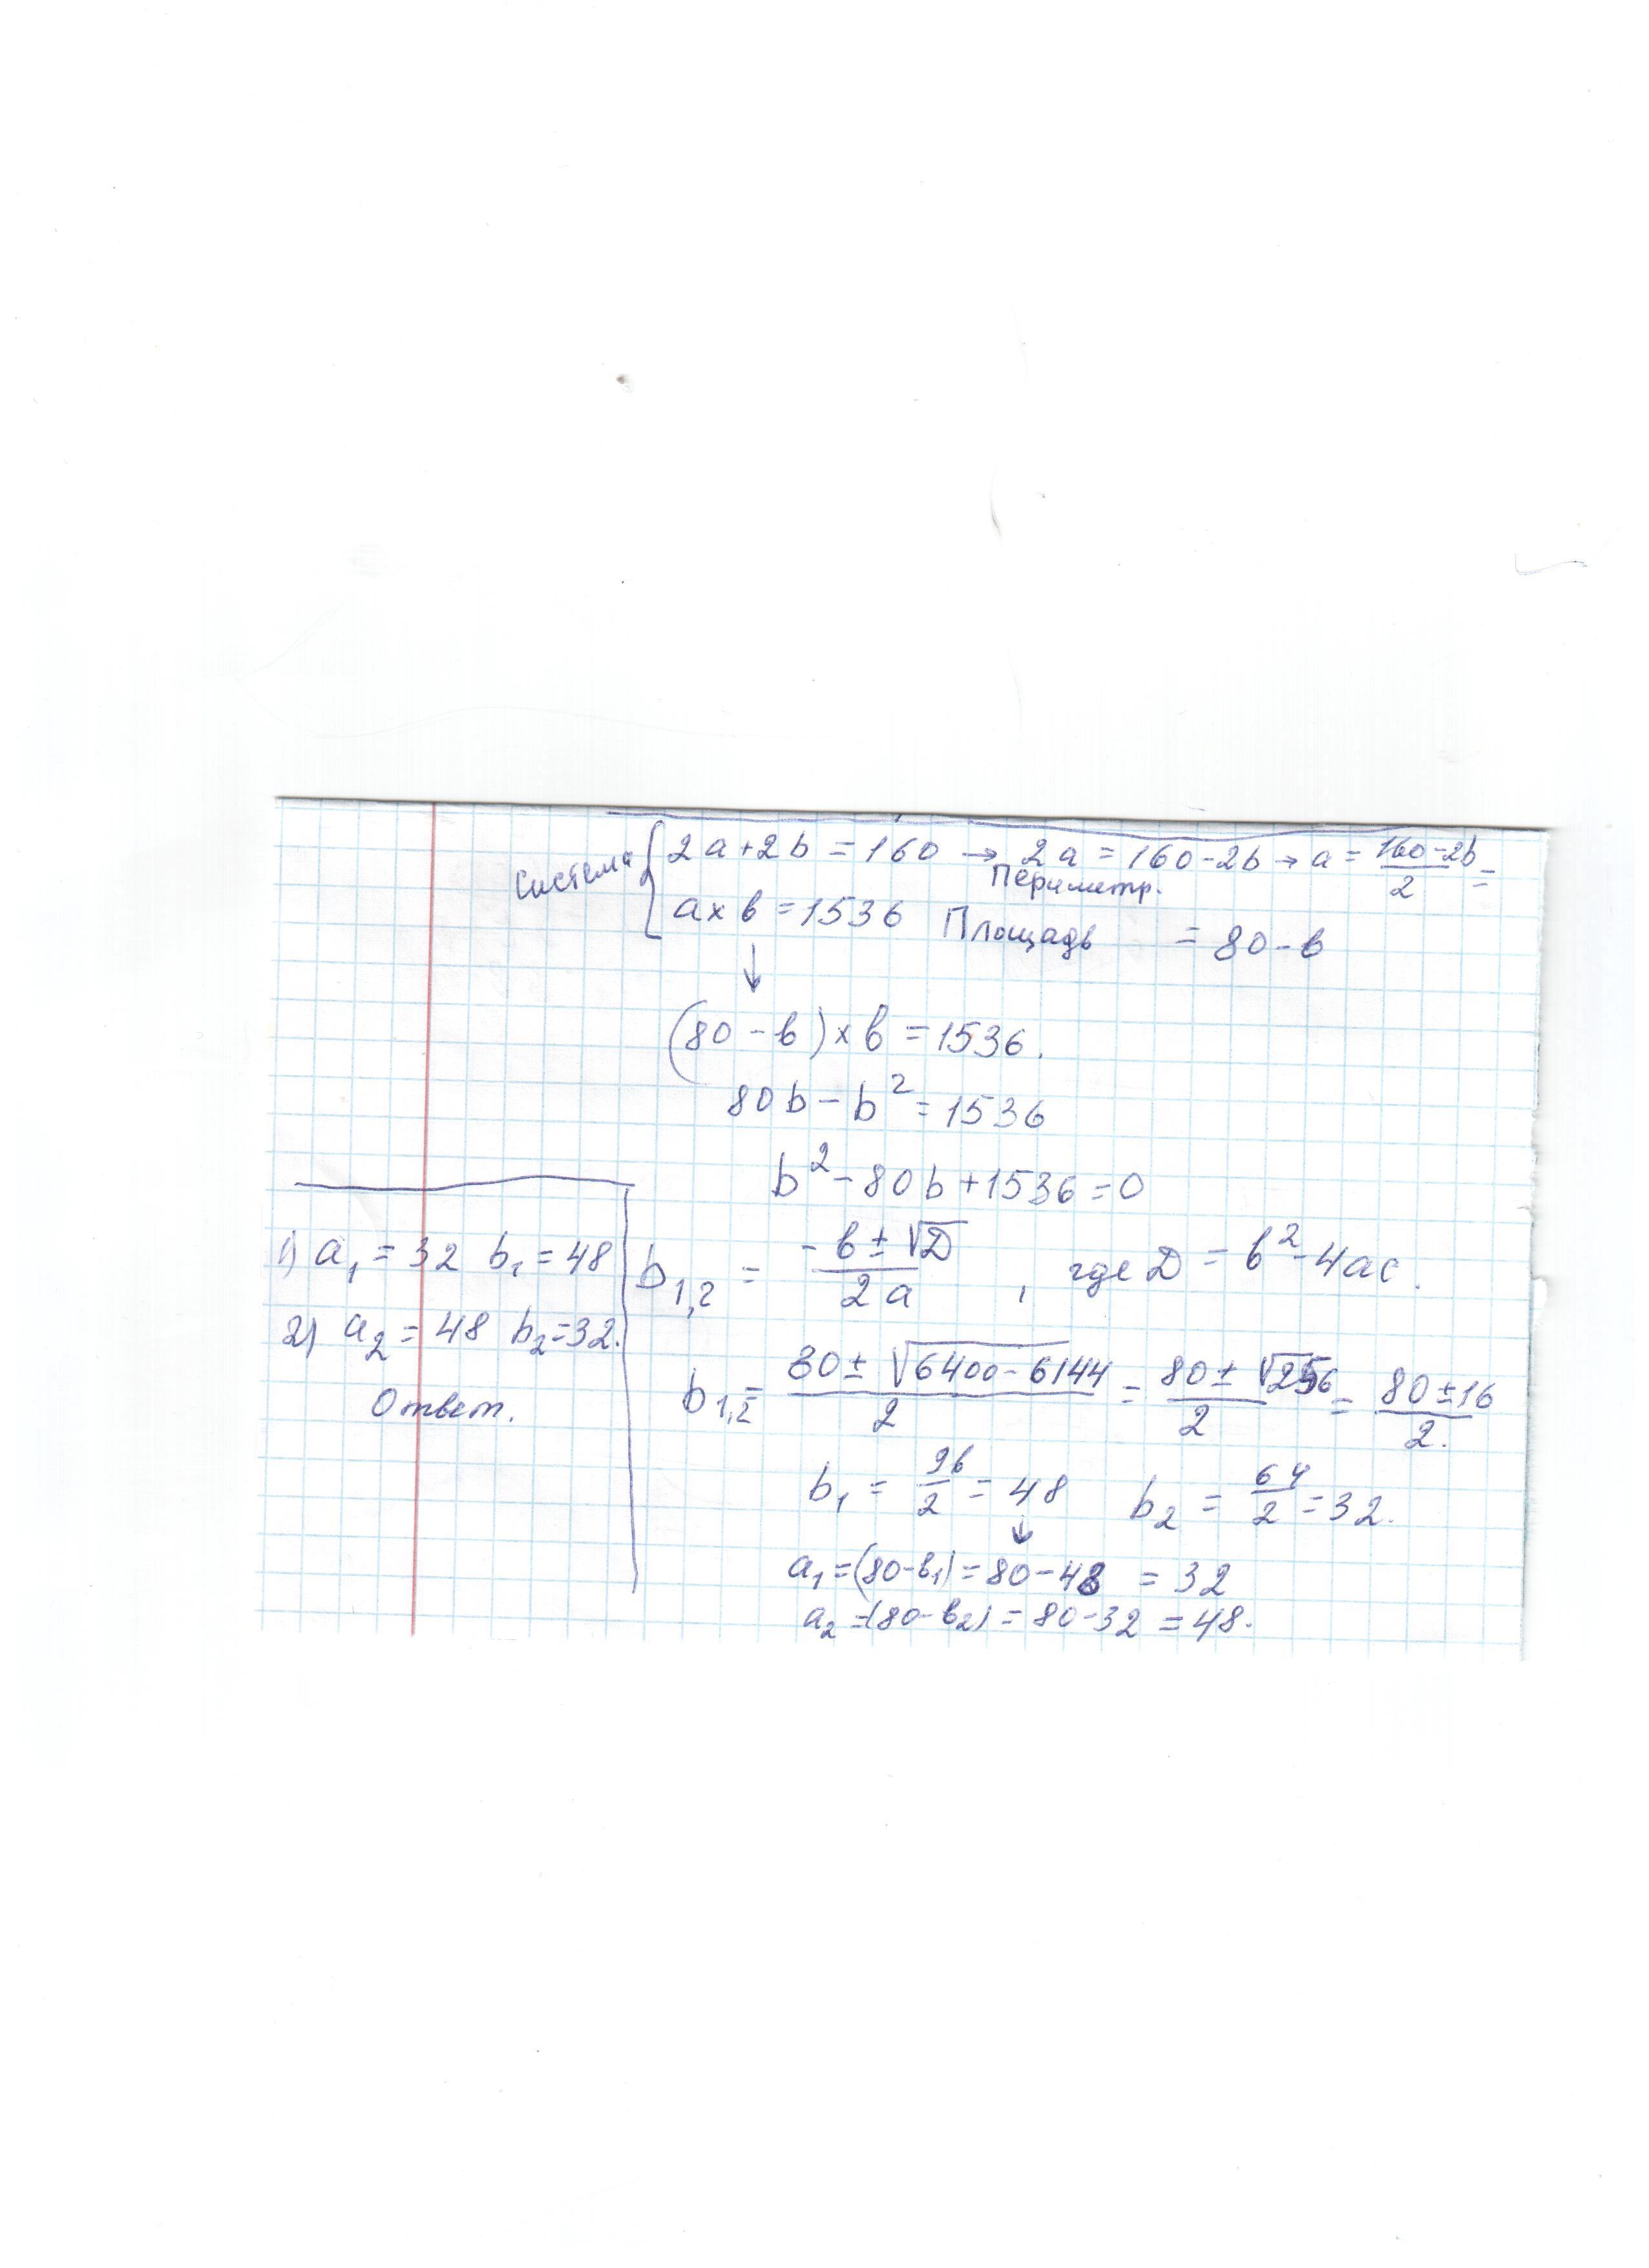 Система { 2a+2b = 160 → 2a = 160-2b → a = (160-2b)/2 =
Периметр.
a x в = 1536 Площадь = 80-в
↓
(80-в) x в = 1536.
80b - b² = 1536
b² - 80b + 1536 = 0
b1,2 = (-в ± √D)/2a , где D = в² - 4ac.
b1,2 = (80 ± √6400-6144)/2 = (80 ± √256)/2 = (80 ± 16)/2.
b1 = 96/2 = 48 b2 = 64/2 = 32.
↓
a1 = (80-в1) = 80-48 = 32
a2 = (80-в2) = 80-32 = 48.
1) a1 = 32 b1 = 48
2) a2 = 48 b2 = 32.
Ответ.